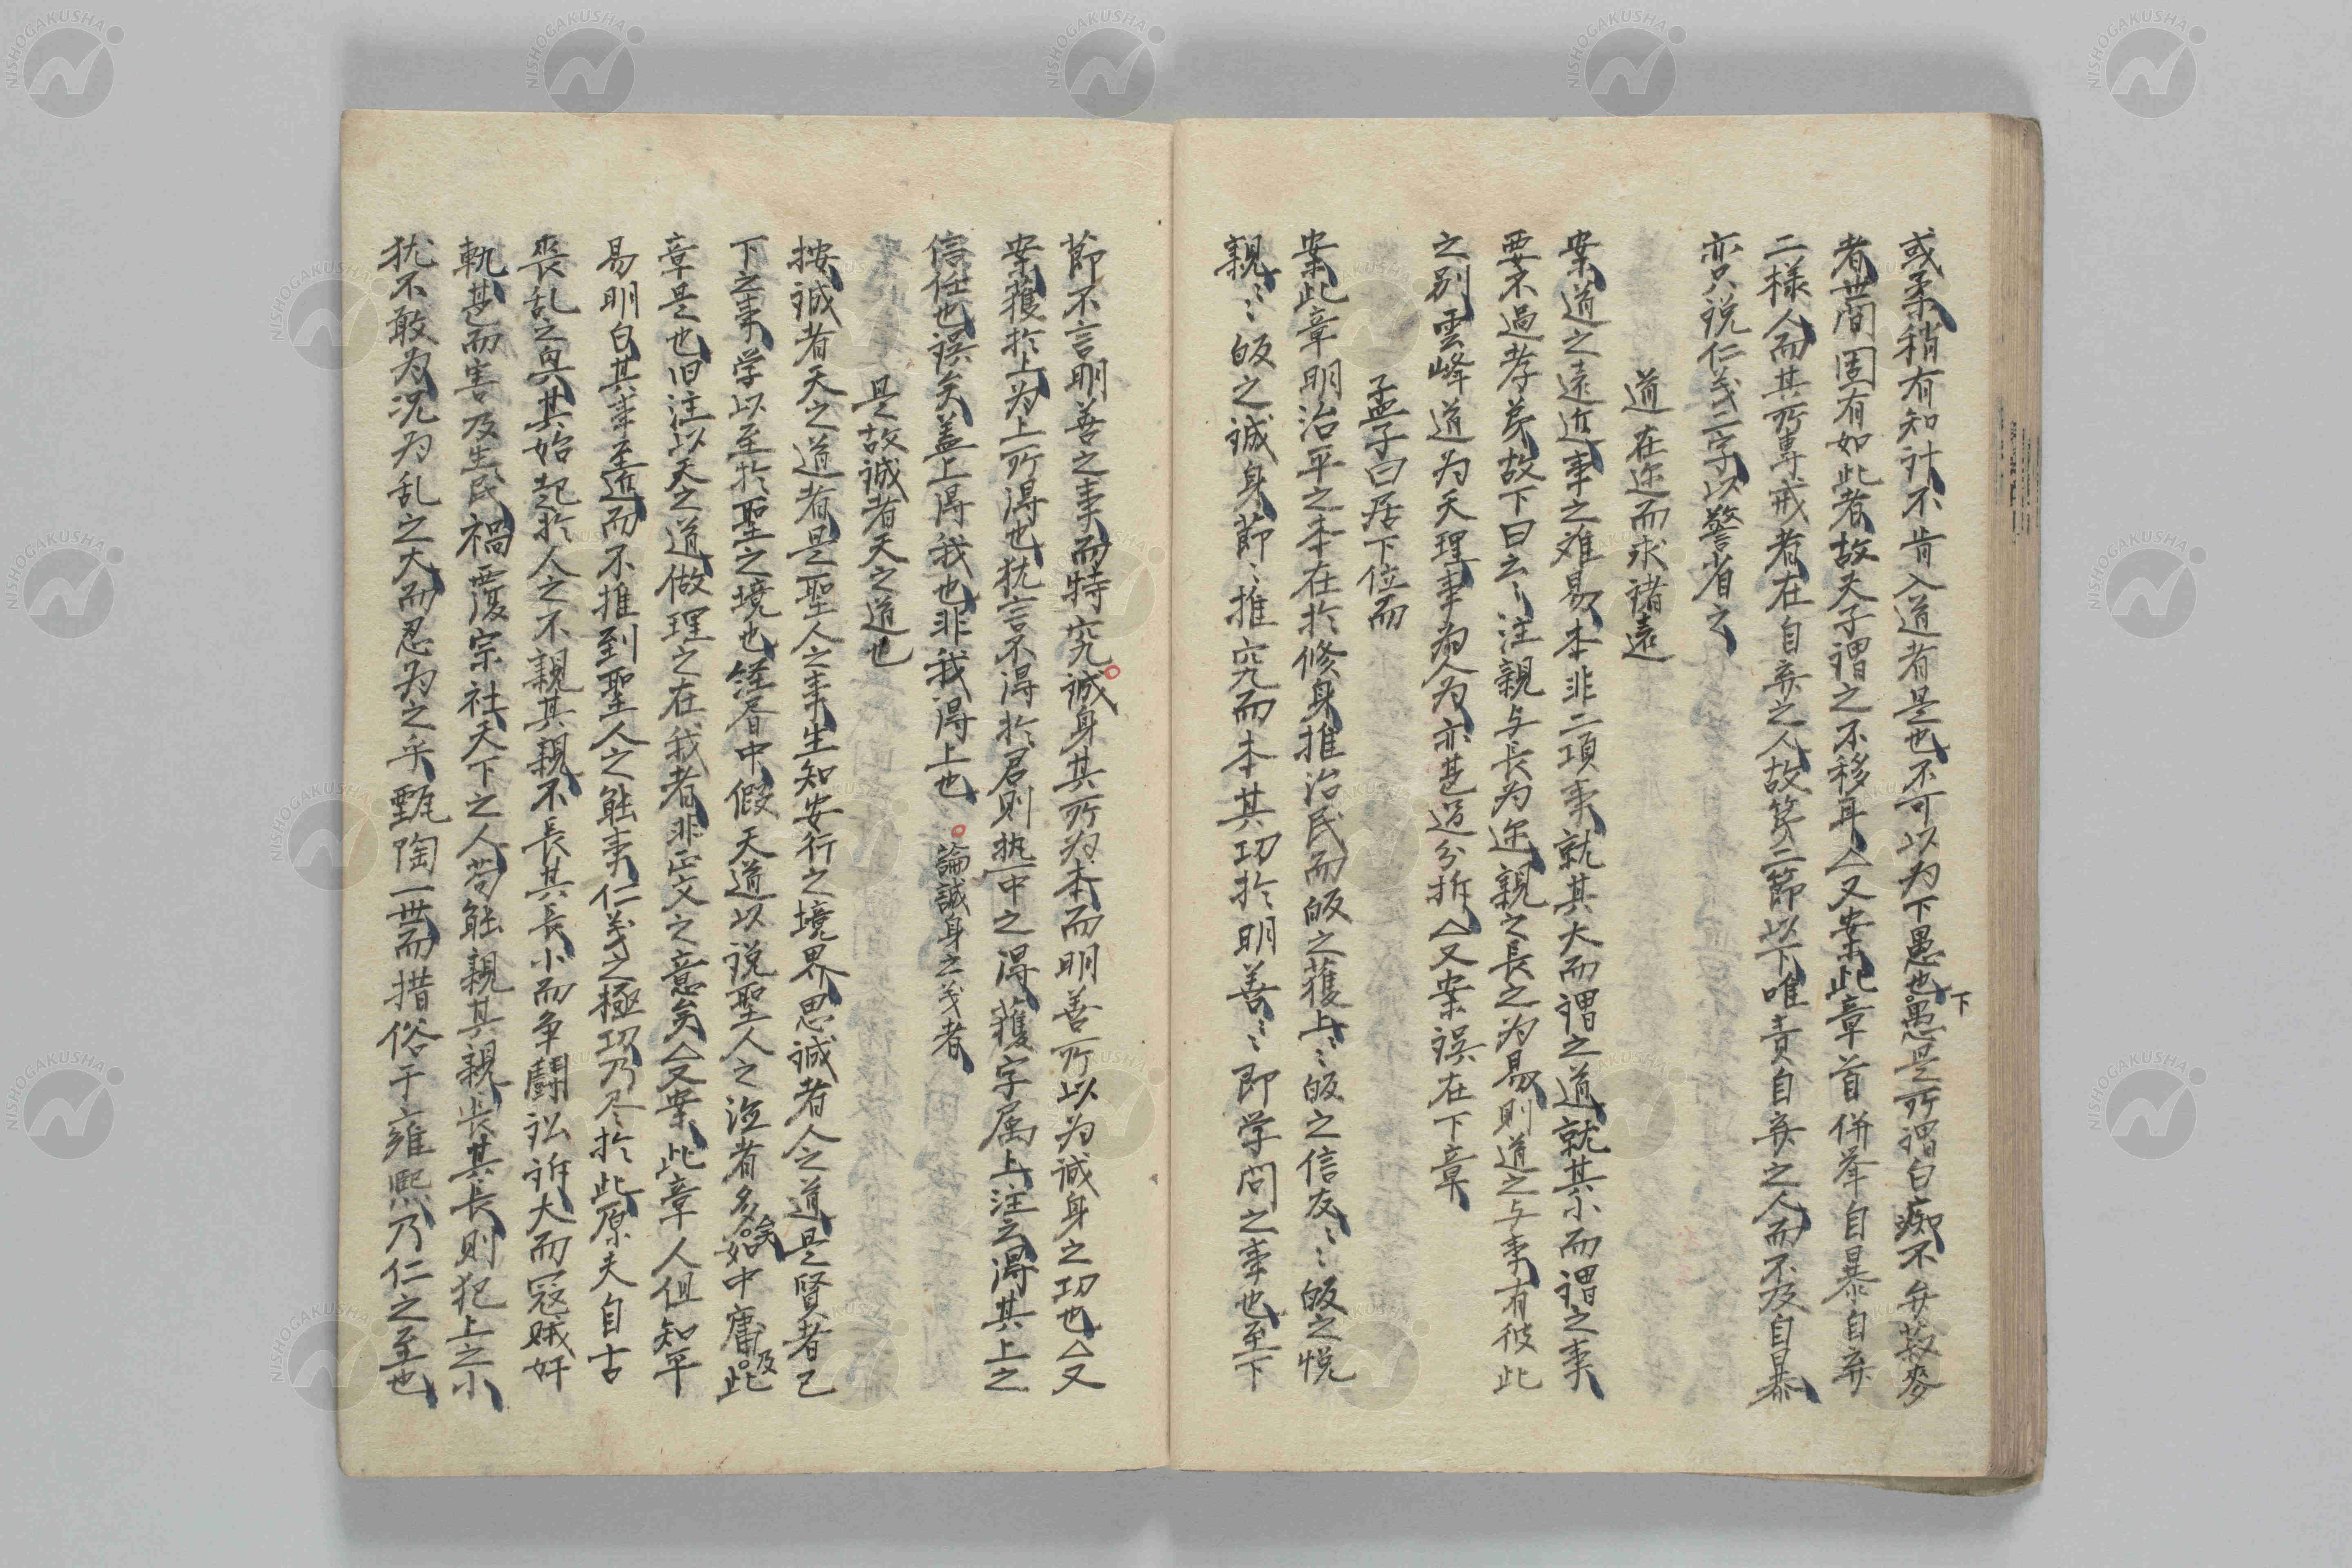 或柔稍有知計不肯入道者是也不可以为下愚也下愚是所謂白痴不弁菽麥
者世间固有如此者故夫子謂之不移耳△又案此章首併挙自暴自弃
二樣人而其所專戒者在自弃之人故第二節以下唯責自弃之人而不及自暴
亦只说仁义二字以警省之
道在迩而求諸遠
案道之遠近事之难易本非二項事就其大而謂之道就其小而謂之事
要不過孝弟故下曰云〻注親与長为迩親之長之为易則道之与事有彼此
之别雲峰道为天理事为人为亦甚過分拆△又案误在下章
孟子曰居下位而
案此章明治平之本在於修身推治民而皈之獲上〻〻皈之信友〻〻皈之悦
親〻〻皈之誠身節〻推究而本其功於明善〻〻即学问之事也至下
節不言明善之事而特究誠身其所为本而明善所以为誠身之功也△又
案獲於上为上所得也犹言不得於君则热中之得獲字属上注云得其上之
信任也误矣盖上得我也非我得上也 論誠身之义者
是故誠者天之道也
按誠者天之道者是聖人之事生知安行之境界思誠者人之道是賢者已
下之事学以至於聖之境也経書中假天道以说聖人之泣者多矣如中庸及此
章是也旧注以天之道做理之在我者非正文之意矣△又案此章人但知平
易明白其事至近而不推到聖人之能事仁义之極功乃尽於此原夫自古
喪乱之臾其始起於人之不親其親不長其長小而争鬪訟訴大而寇贼奸
軌甚而害及生民禍覆宗社天下之人苟能親其親長其長則犯上之小
犹不敢为况为乱之大而忍为之乎甄陶一世而措俗于雍熙乃仁之至也
NISHOGAKUSHA